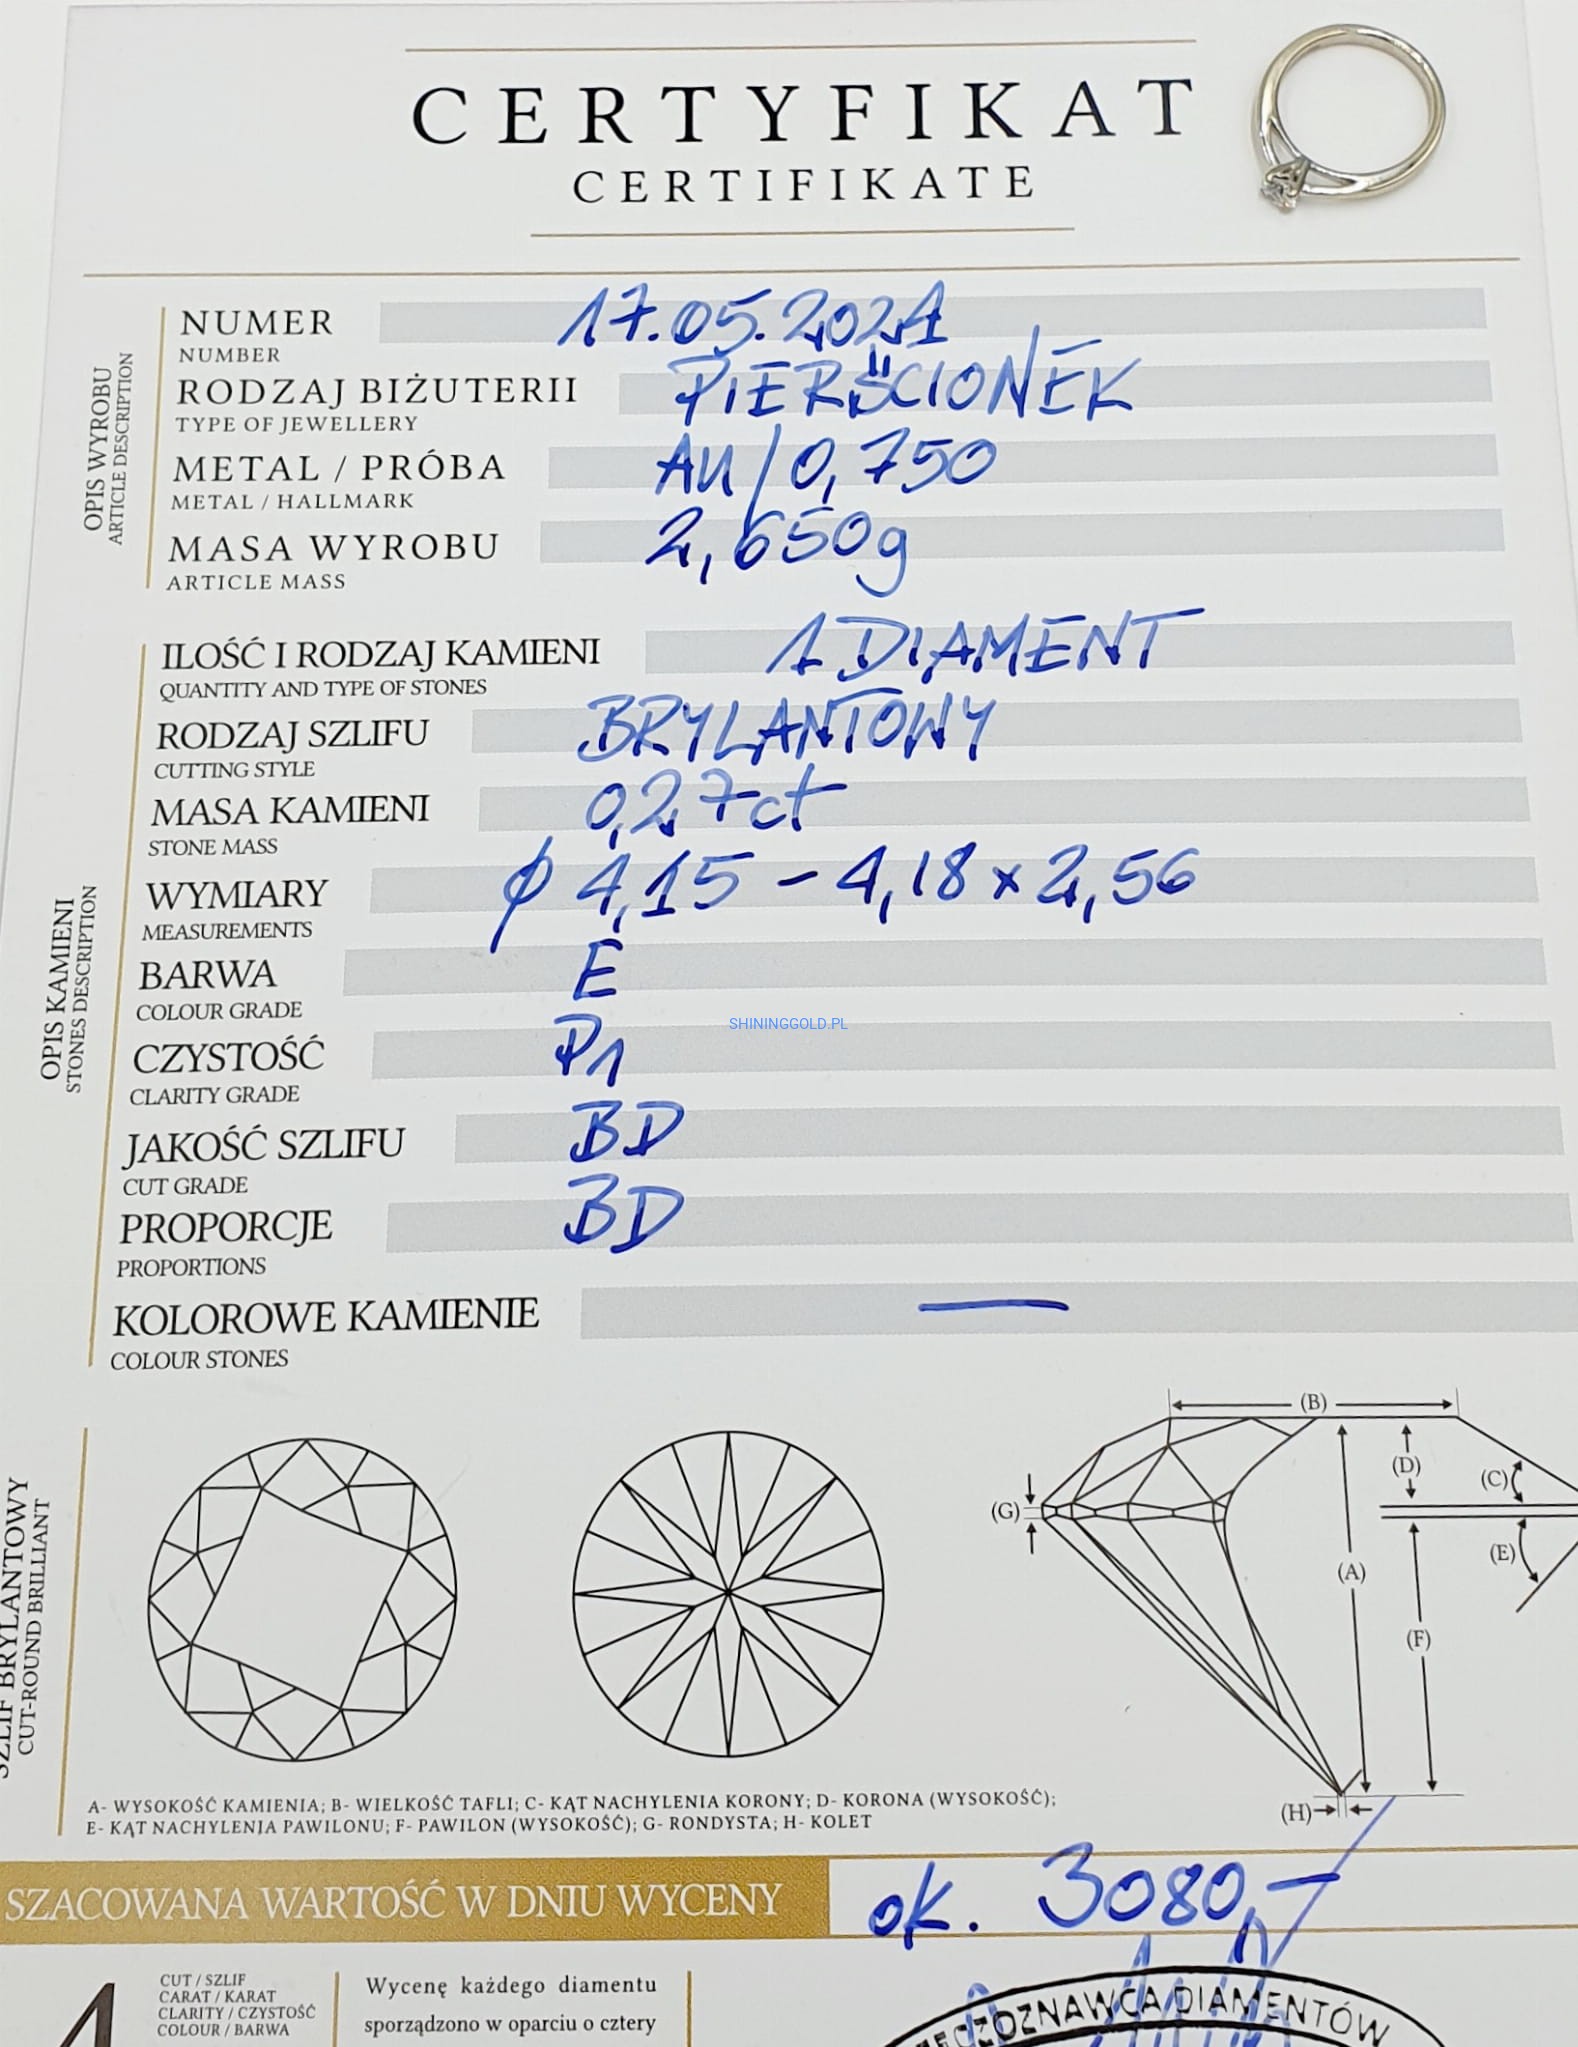 CERTYFIKAT
CERTIFIKATE
OPIS WYROBU
ARTICLE DESCRIPTION
NUMER 17.05.2024
NUMBER
RODZAJ BIŻUTERII PIERŚCIONEK
TYPE OF JEWELLERY
METAL / PRÓBA Au/0,750
METAL / HALLMARK
MASA WYROBU 2,650g
ARTICLE MASS
OPIS KAMIENI
STONES DESCRIPTION
ILOŚĆ I RODZAJ KAMIENI 1 DIAMENT
QUANTITY AND TYPE OF STONES
RODZAJ SZLIFU BRYLANTOWY
CUTTING STYLE
MASA KAMIENI 0,27ct
STONE MASS
WYMIARY ϕ 4,15 - 4,18 x 2,56
MEASUREMENTS
BARWA E
COLOUR GRADE
SHININGGOLD.PL
CZYSTOŚĆ P1
CLARITY GRADE
JAKOŚĆ SZLIFU BD
CUT GRADE
PROPORCJE BD
PROPORTIONS
KOLOROWE KAMIENIE —
COLOUR STONES
SZLIF BRYLANTOWY
CUT-ROUND BRILLIANT
(B)
(D)
(C)
(G)
(E)
(A)
(F)
(H)
A- WYSOKOŚĆ KAMIENIA; B- WIELKOŚĆ TAFLI; C- KĄT NACHYLENIA KORONY; D- KORONA (WYSOKOŚĆ);
E- KĄT NACHYLENIA PAWILONU; F- PAWILON (WYSOKOŚĆ); G- RONDYSTA; H- KOLET
SZACOWANA WARTOŚĆ W DNIU WYCENY ok. 3080,-
4
CUT / SZLIF
CARAT / KARAT
CLARITY / CZYSTOŚĆ
COLOUR / BARWA
Wycenę każdego diamentu
sporządzono w oparciu o cztery
RZECZOZNAWCA DIAMENTÓW